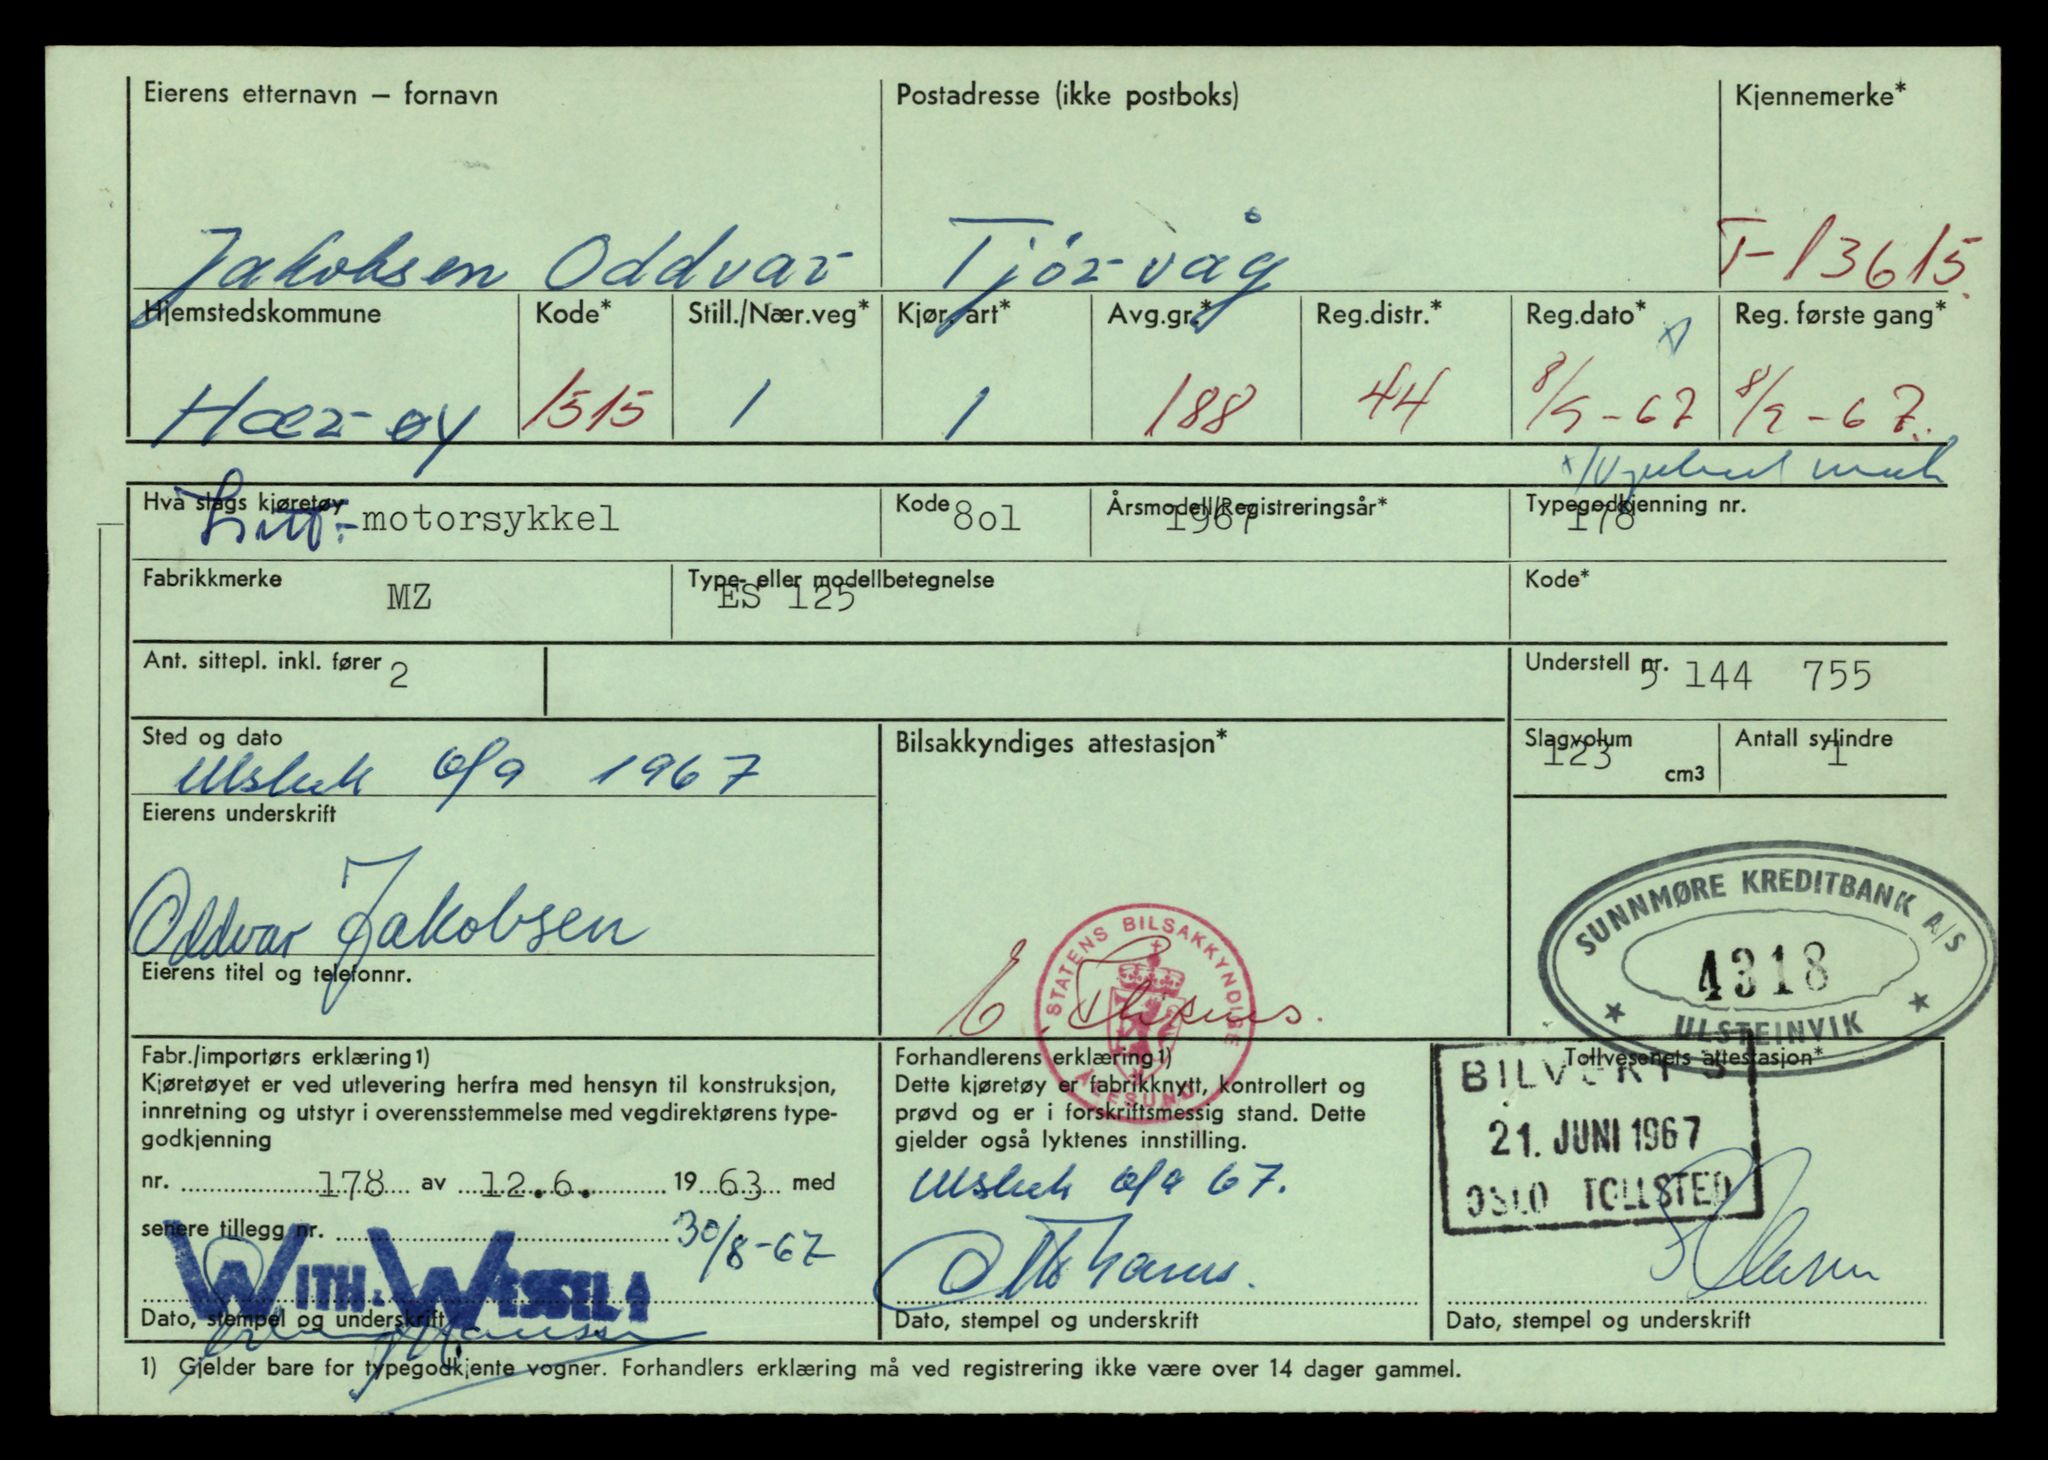 Eierens etternavn – fornavn
Postadresse (ikke postboks)
Kjennemerke*
Jakobsen Oddvar
Tjörvåg
T-13615
Hjemstedskommune
Kode*
Still./Nær.veg*
Kjør. art*
Avg.gr.*
Reg.distr.*
Reg.dato*
Reg. første gang*
Herøy
1515
1
1
188
44
8/9-67
8/9-67
Hva slags kjøretøy
Kode
Årsmodell/Registreringsår*
Typegodkjenning nr.
Lett-motorsykkel
8o1
1967
178
Fabrikkmerke
Type- eller modellbetegnelse
Kode*
MZ
ES 125
Ant. sittepl. inkl. fører
2
Understell nr.
5 144 755
Sted og dato
Bilsakkyndiges attestasjon*
Slagvolum
123
cm3
Antall sylindre
1
1967
Eierens underskrift
Oddvar Jakobsen
Eierens titel og telefonnr.
STATENS BILSAKKYNDIGE
ÅLESUND
SUNNMØRE KREDITBANK A/S
4318
ULSTEINVIK
Fabr./importørs erklæring1)
Kjøretøyet er ved utlevering herfra med hensyn til konstruksjon,
innretning og utstyr i overensstemmelse med vegdirektørens type-
godkjenning
nr. 178 av 12.6. 19 63 med
senere tillegg nr.
30/8-67
WITH & WESSEL A
Dato, stempel og underskrift
Forhandlerens erklæring1)
Dette kjøretøy er fabrikknytt, kontrollert og
prøvd og er i forskriftsmessig stand. Dette
gjelder også lyktenes innstilling.
67.
Dato, stempel og underskrift
Tollvesenets attestasjon*
21. JUNI 1967
OSLO TOLLSTED
Dato, stempel og underskrift
1) Gjelder bare for typegodkjente vogner. Forhandlers erklæring må ved registrering ikke være over 14 dager gammel.